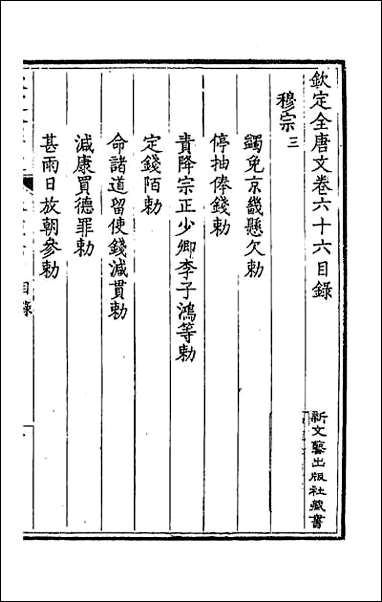 欽定全唐文卷六十六目錄
穆宗三
蠲免京畿懸欠勅
停抽俸錢勅
責降宗正少卿李子鴻等勅
定錢陌勅
命諸道留使錢減貫勅
減康買德罪勅
甚雨日放朝參勅
目錄
新文藝出版社藏書